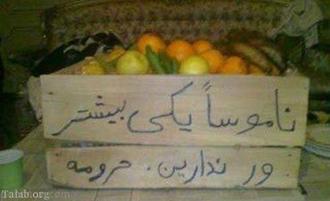 ناموساً یکی بیشتر
ور ندارین. حرومه
Talab.org.com